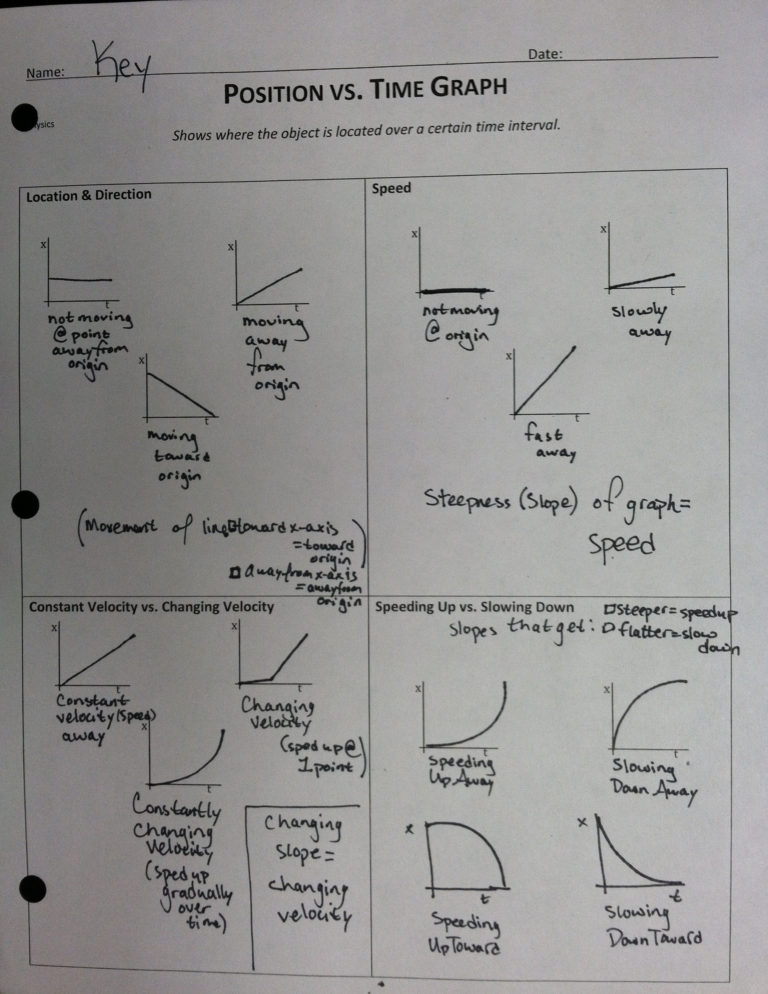 Name: Key
Date:
POSITION VS. TIME GRAPH
ysics
Shows where the object is located over a certain time interval.
Location & Direction
x
t
not moving
@ point
away from
origin
x
t
moving
away
from
origin
x
t
moving
toward
origin
(Movement of line toward x-axis
=toward
origin
away from x-axis
=away from
origin)
Speed
x
t
not moving
@ origin
x
t
slowly
away
x
t
fast
away
Steepness (Slope) of graph=
Speed
Constant Velocity vs. Changing Velocity
x
t
Constant
velocity (speed)
away
x
t
Changing
velocity
(sped up @
1 point)
x
t
Constantly
Changing
velocity
(sped up
gradually
over
time)
Changing
slope=
changing
velocity
Speeding Up vs. Slowing Down
Slopes that get: steeper=speed up
flatter=slow
down
x
t
Speeding
Up Away
x
t
Slowing
Down Away
x
t
Speeding
Up Toward
x
t
Slowing
Down Toward